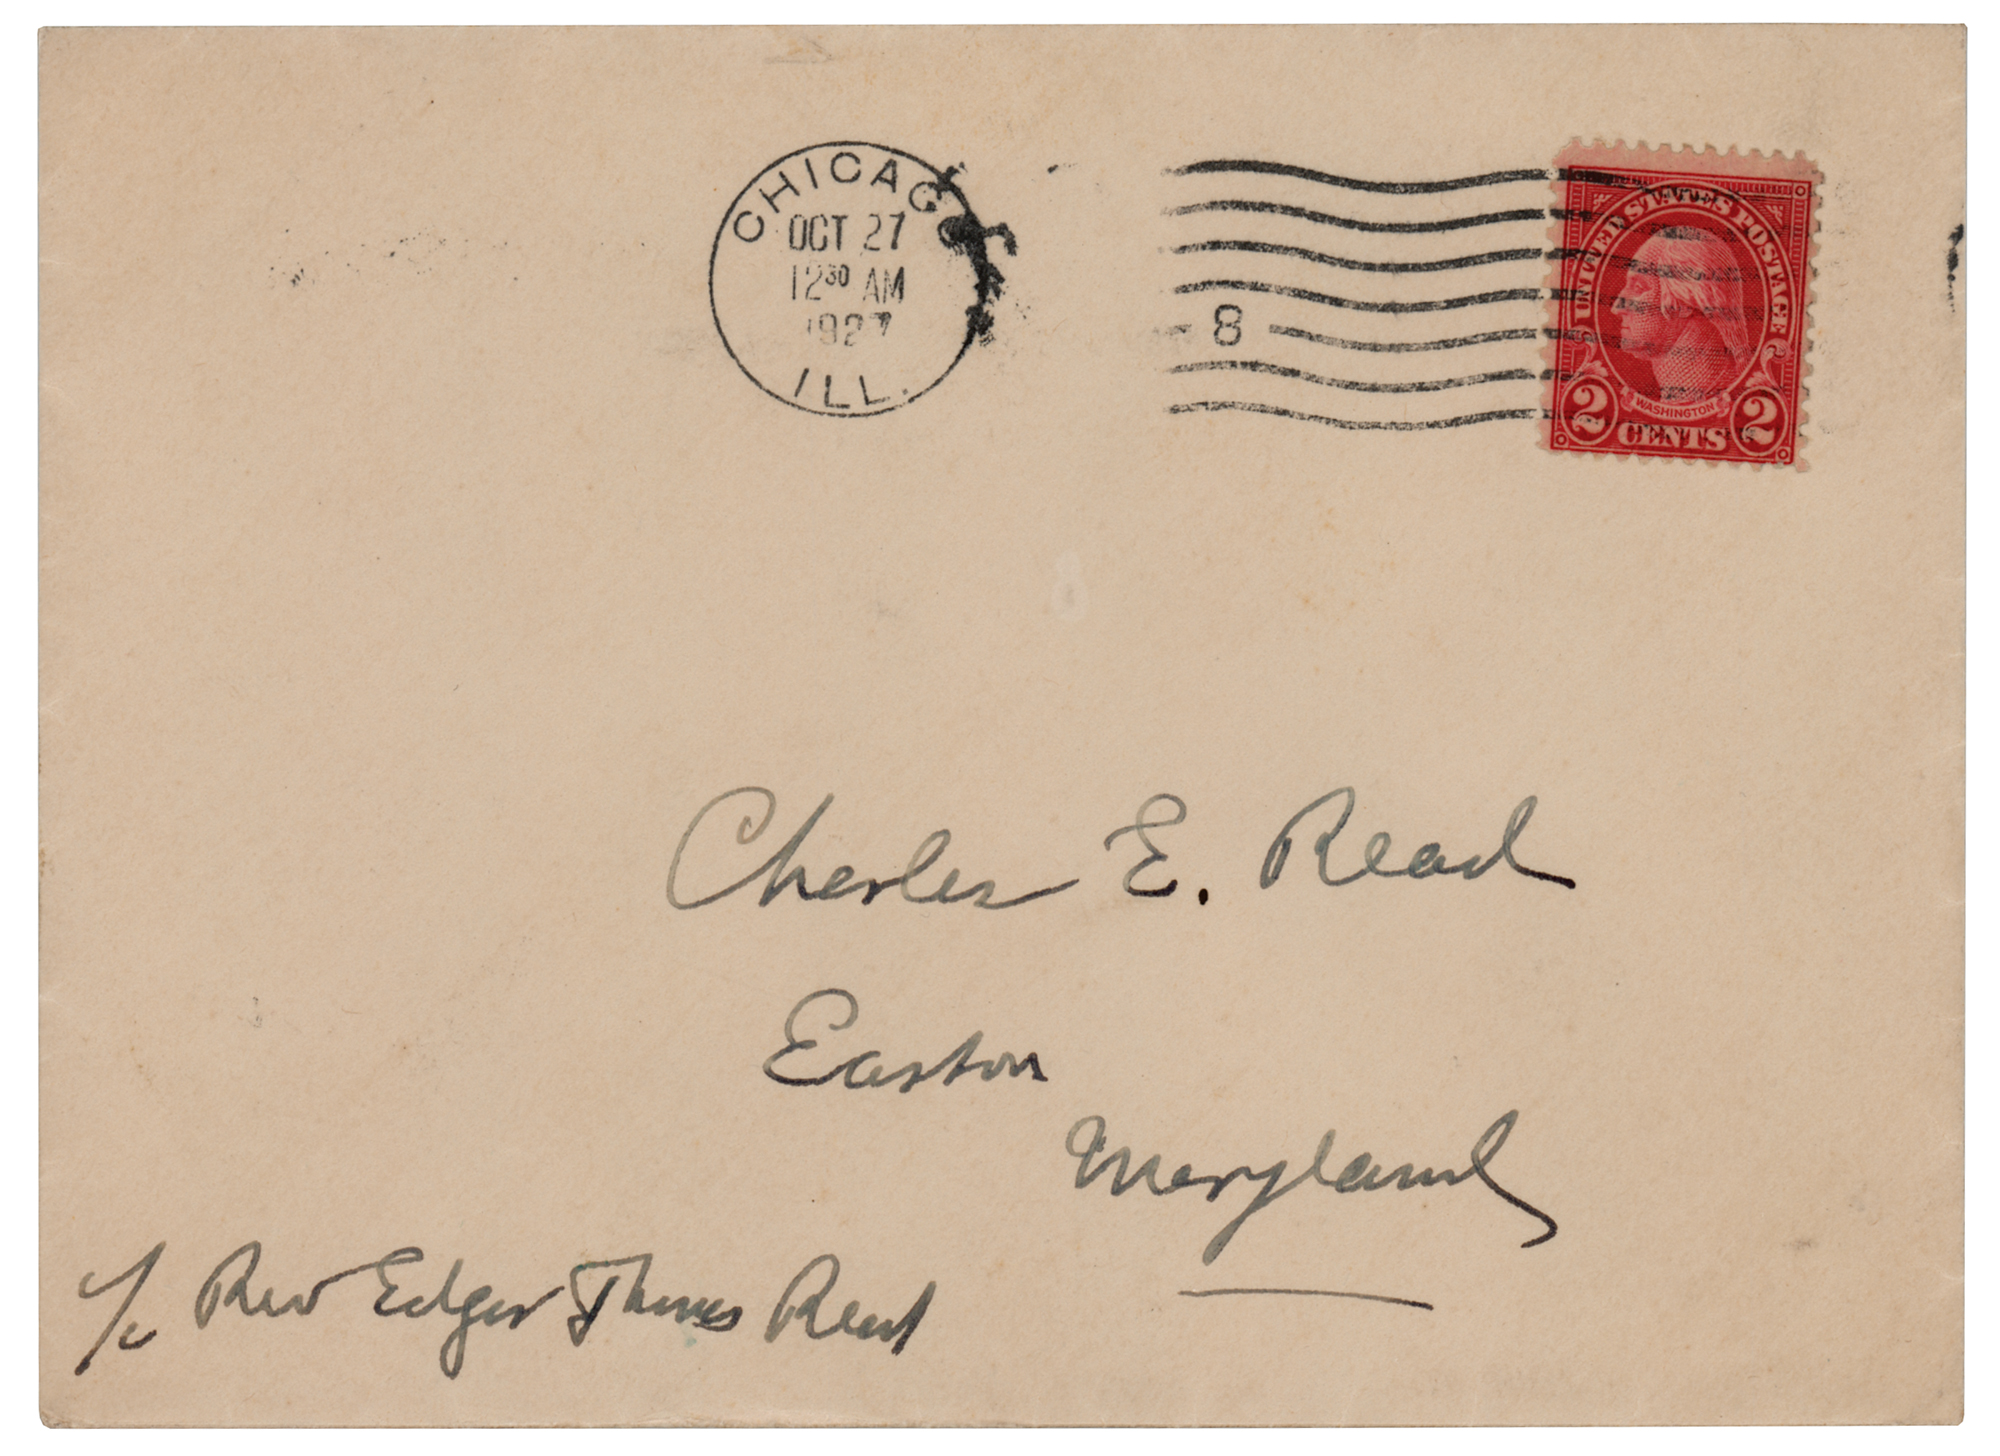 CHICAGO
OCT 27
12 30 AM
1927
ILL.
8
UNITED STATES POSTAGE
WASHINGTON
2 CENTS 2
Charles E. Read
Easton
Maryland
c/o Rev Edgar Thomas Read